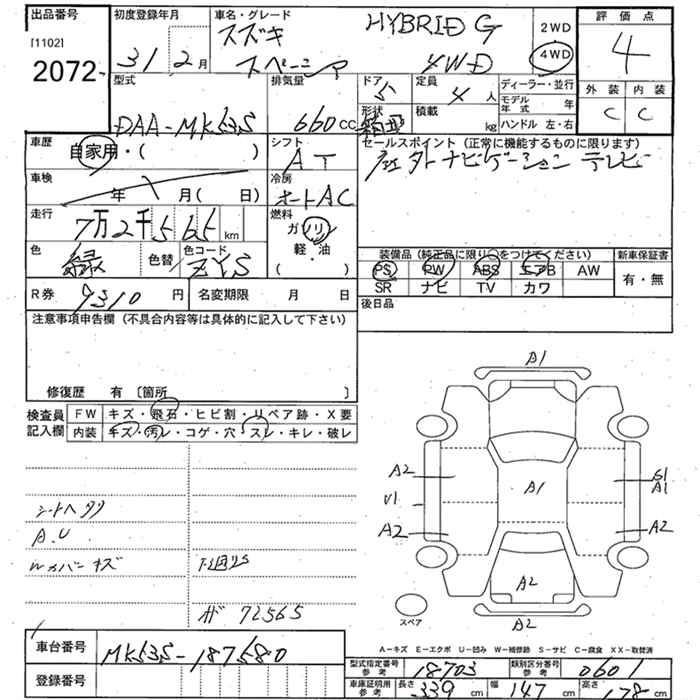 出品番号 初度登録年月 車名・グレード HYBRID G 2WD 評価点
[1102] 31年 2月 スズキ 4WD 4
2072 スペーシア 4WD 外装 内装
型式 排気量 ドア 5 定員 4人 ディーラー・並行 C C
DAA-MK53S 660cc 形状 積載 kg モデル年式 年
ハンドル 左・右
車歴 自家用・( ) シフト AT セールスポイント(正常に機能するものに限ります)
社外ナビゲーション テレビ
車検 年 月( 日) 冷房 オートAC
走行 7万2千565km 燃料 ガソリン
軽・油
( )
色 緑 色替 色コード ZYS
装備品(純正品に限り○をつけてください) 新車保証書
PS PW ABS エアB AW 有・無
SR ナビ TV カワ
R券 9310円 名変期限 月 日 後日品
注意事項申告欄(不具合内容等は具体的に記入して下さい)
修復歴 有〔箇所 〕
検査員記入欄 FW キズ・飛石・ヒビ割・リペア跡・X要
内装 キズ・汚レ・コゲ・穴・スレ・キレ・破レ
A1
A2 A1 S1
A1
U1
A2 A2
A2
A2
シートヘタリ
A.U
Wカバーキズ 下回りS
ガ 72565
スペア
A-キズ E-エクボ U-凹み W-補修跡 S-サビ C-腐食 XX-取替済
車台番号 MK53S-187580 型式指定番号 参考 18703 類別区分番号 参考 0601
登録番号 車庫証明用 参考 長さ 339cm 幅 147cm 高さ 178cm